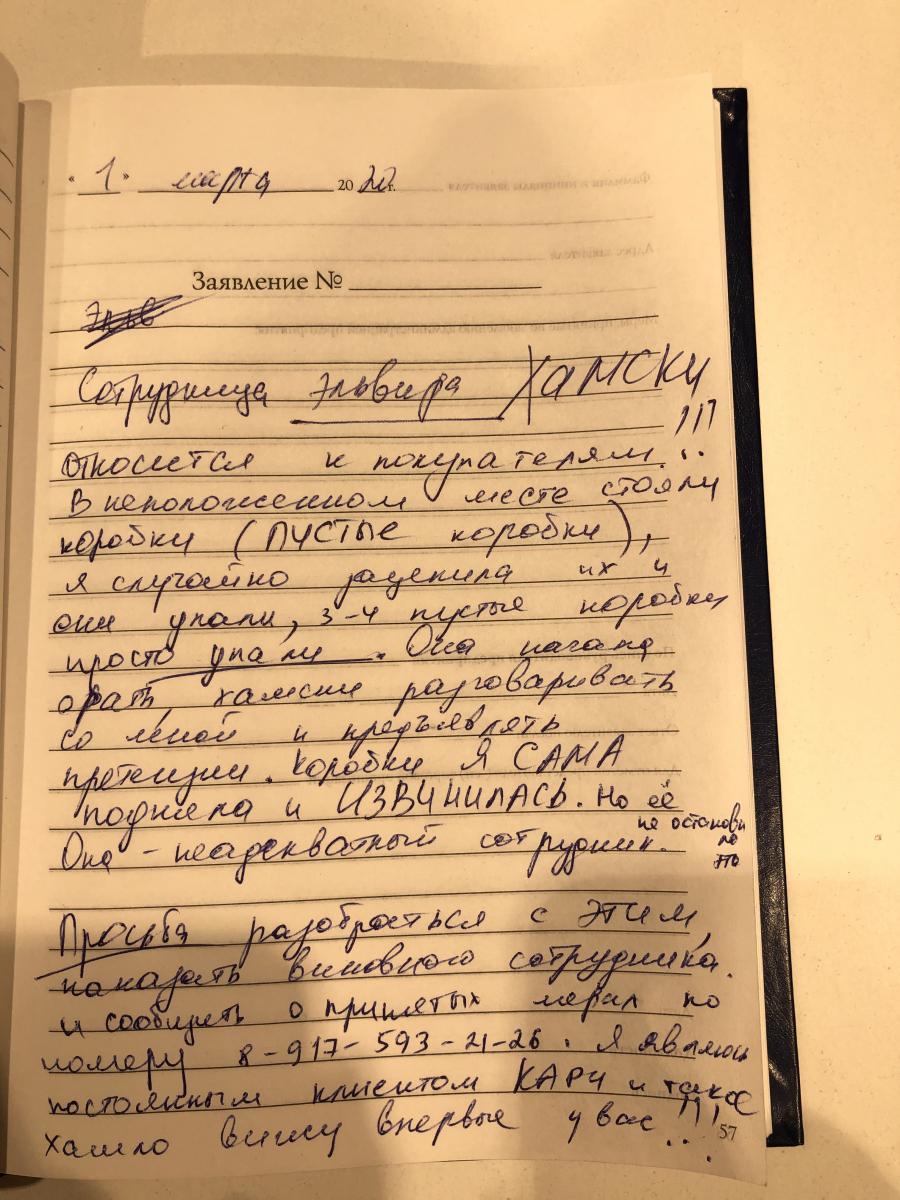 « 1 » марта 2020 г.
Фамилия и инициалы заявителя
Адрес заявителя
Заявление №
Эльв
Сотрудница Эльвира ХАМСКИ
относится к покупателям!!!
В неположенном месте стояли
коробки (ПУСТЫЕ коробки),
я случайно зацепила их и
они упали, 3-4 пустые коробки
просто упали. Она начала
орать, хамски разговаривать
со мной и предъявлять
претензии. Коробки Я САМА
подняла и ИЗВИНИЛАСЬ. Но её
не останови
ло
это
Она - неадекватный сотрудник.
Просьба разобраться с этим,
наказать виновного сотрудника.
и сообщить о принятых мерах по
номеру 8-917-593-21-26. Я являюсь
постоянным клиентом КАРИ и такое
хамло вижу впервые у вас!!!
57